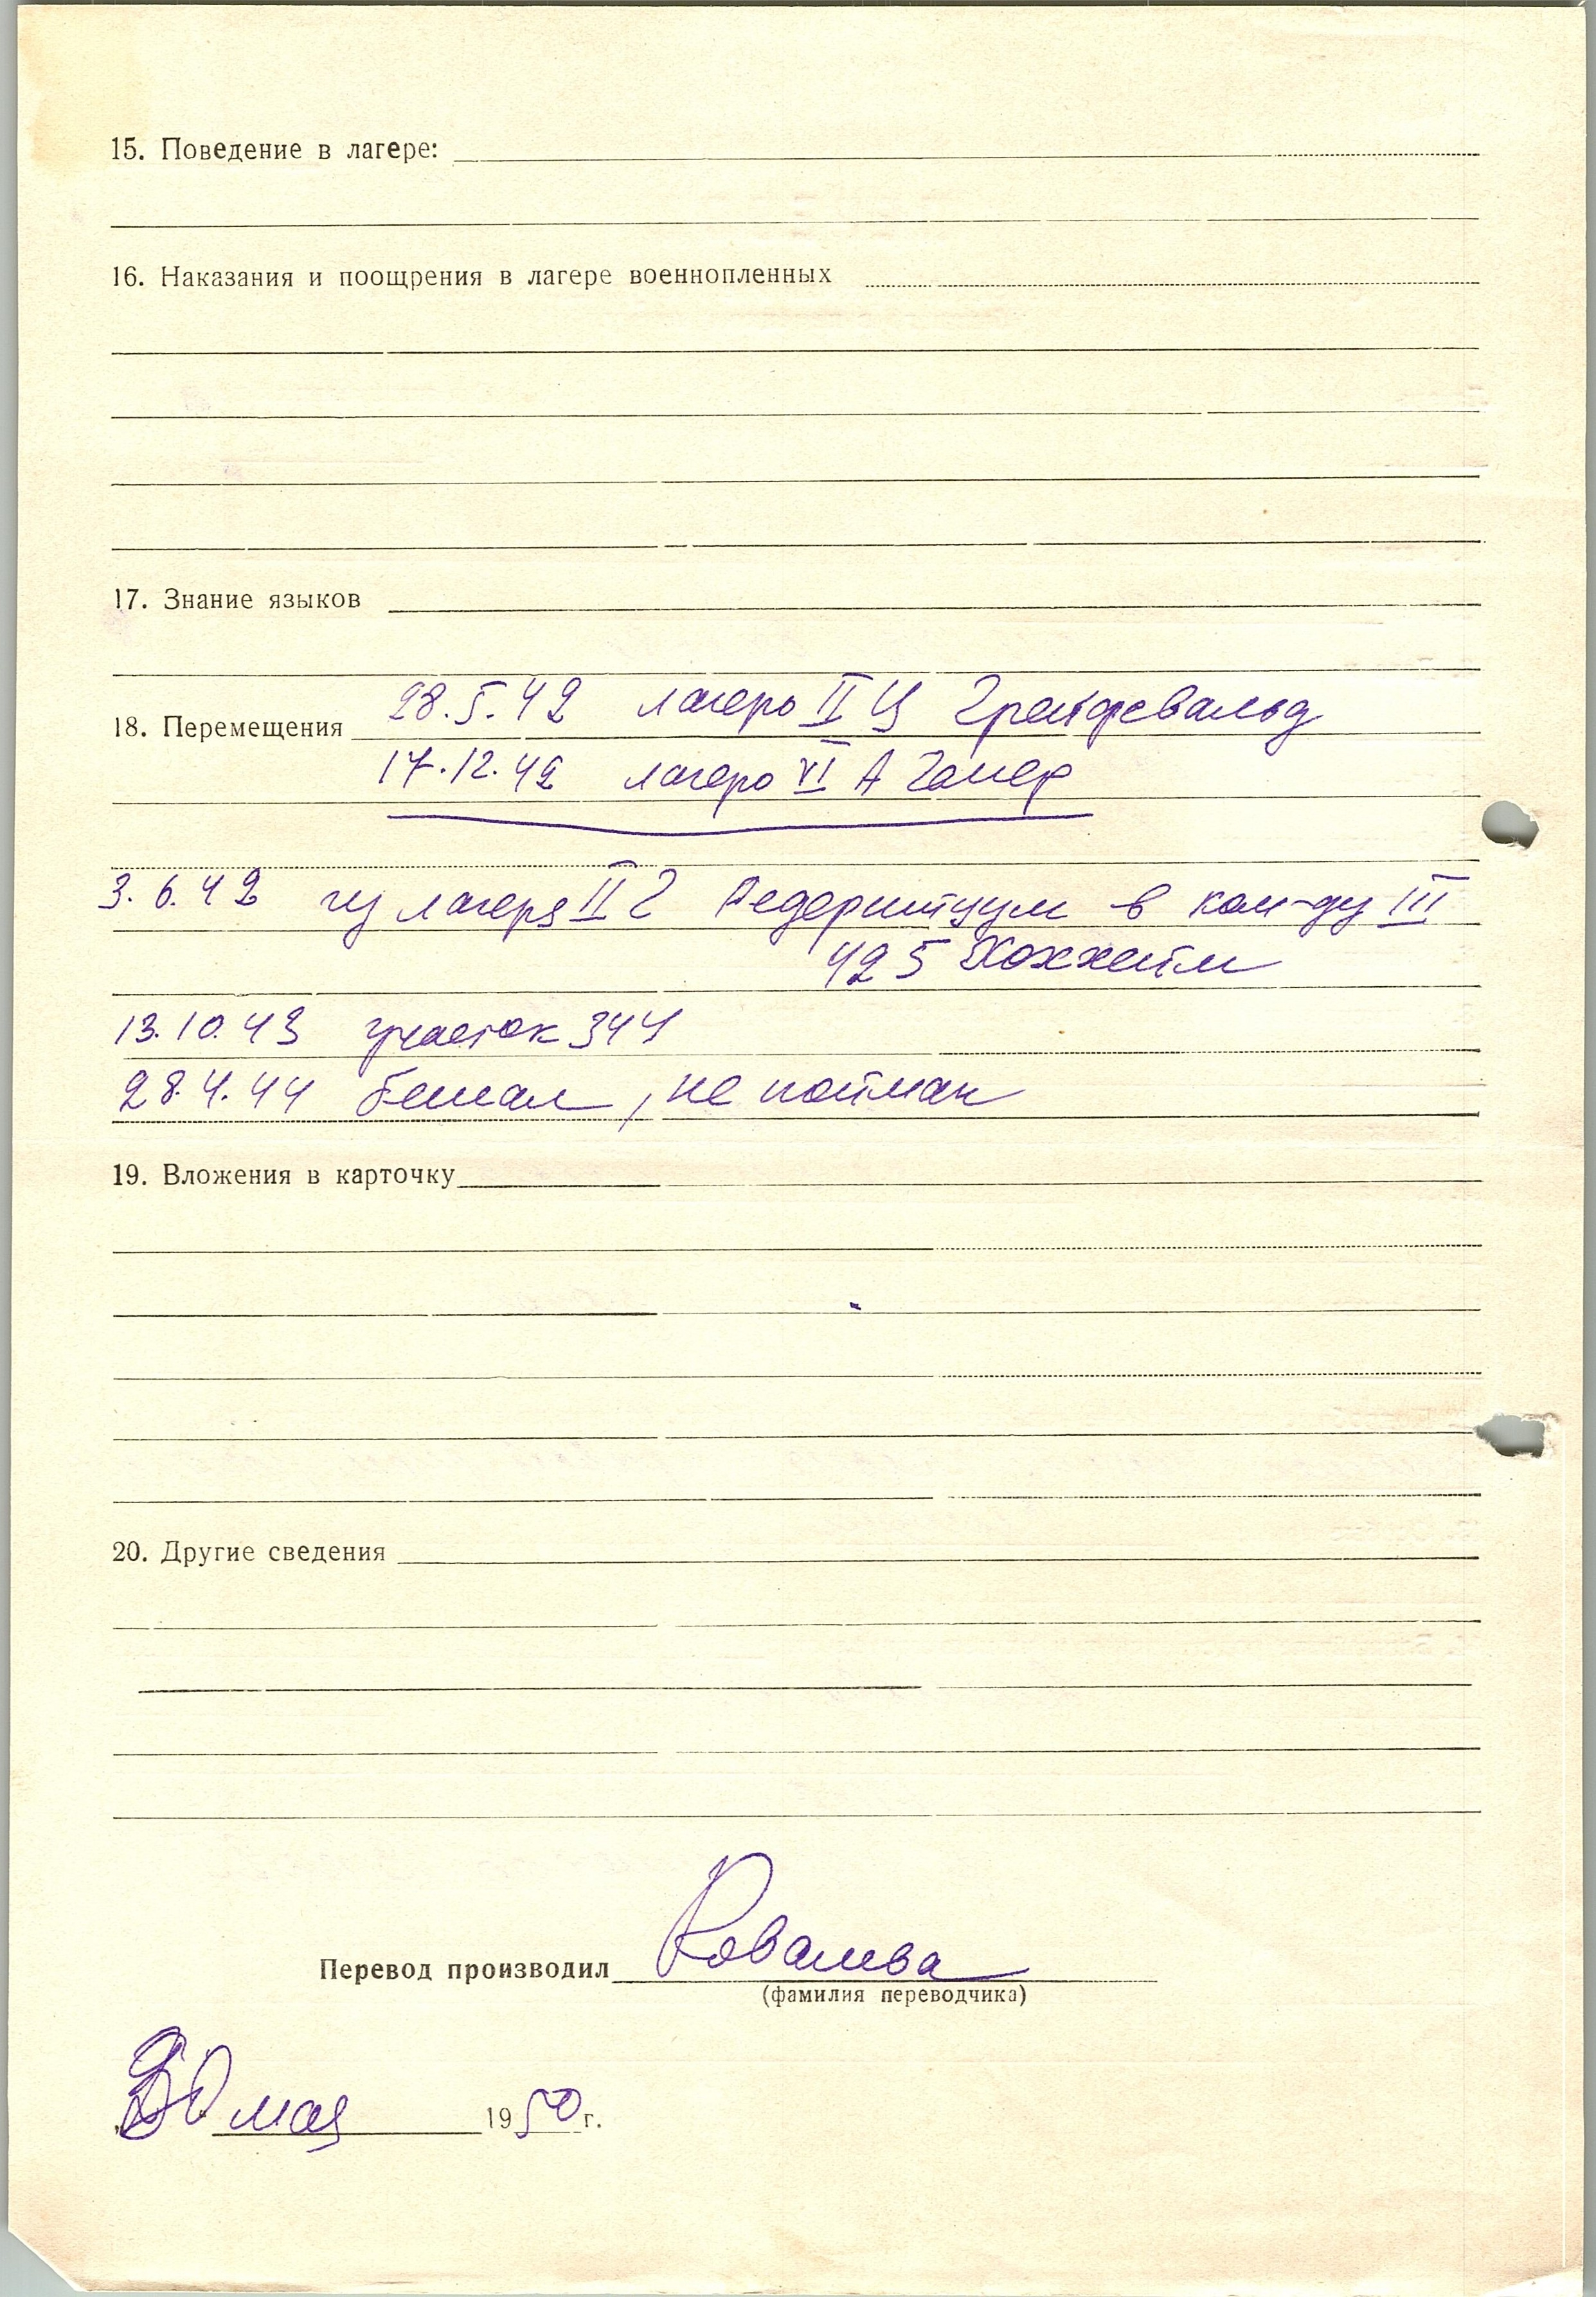 15. Поведение в лагере:
16. Наказания и поощрения в лагере военнопленных
17. Знание языков
28.5.42 лагерь II Ц Грейфсвальд
18. Перемещения
17.12.42 лагерь VI А Гемер
3.6.42 из лагеря II Г в ком-ду III
425 Хоххейм
13.10.43 участок 344
28.4.44 бежал, не пойман
19. Вложения в карточку
20. Другие сведения
Перевод производил Ковалева
(фамилия переводчика)
мая 1950 г.